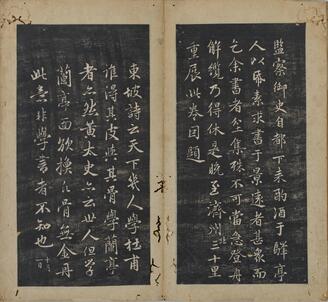 監察御史自都下來酌酒于驛亭
人以紙素求書于景遠者甚眾而
乞余書者坌集殊不可當急登舟
解纜乃得休是晚至濟州北三十里
重展此卷因題
東坡詩云天下幾人學杜甫
誰得其皮與其骨學蘭亭
者亦然黃太史亦云世人但學
蘭亭面欲換凡骨無金丹
此意非學書者不知也